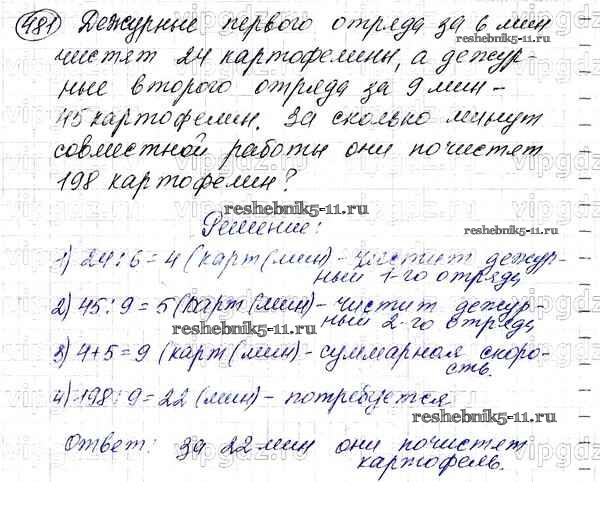 481 Дежурные первого отряда за 6 мин
чистят 24 картофелины, а дежур-
ные второго отряда за 9 мин -
45 картофелин. За сколько минут
совместной работы они почистят
198 картофелин?
reshebnik5-11.ru
Решение:
reshebnik5-11.ru
1) 24:6=4 (карт(мин) - чистит дежур-
ный 1-го отряда
2) 45:9=5 (карт(мин) - чистит дежур-
ный 2-го отряда
reshebnik5-11.ru
3) 4+5=9 (карт(мин) - суммарная скоро-
сть.
4) 198:9=22 (мин) - потребуется
reshebnik5-11.ru
Ответ: за 22 мин они почистят
картофель.